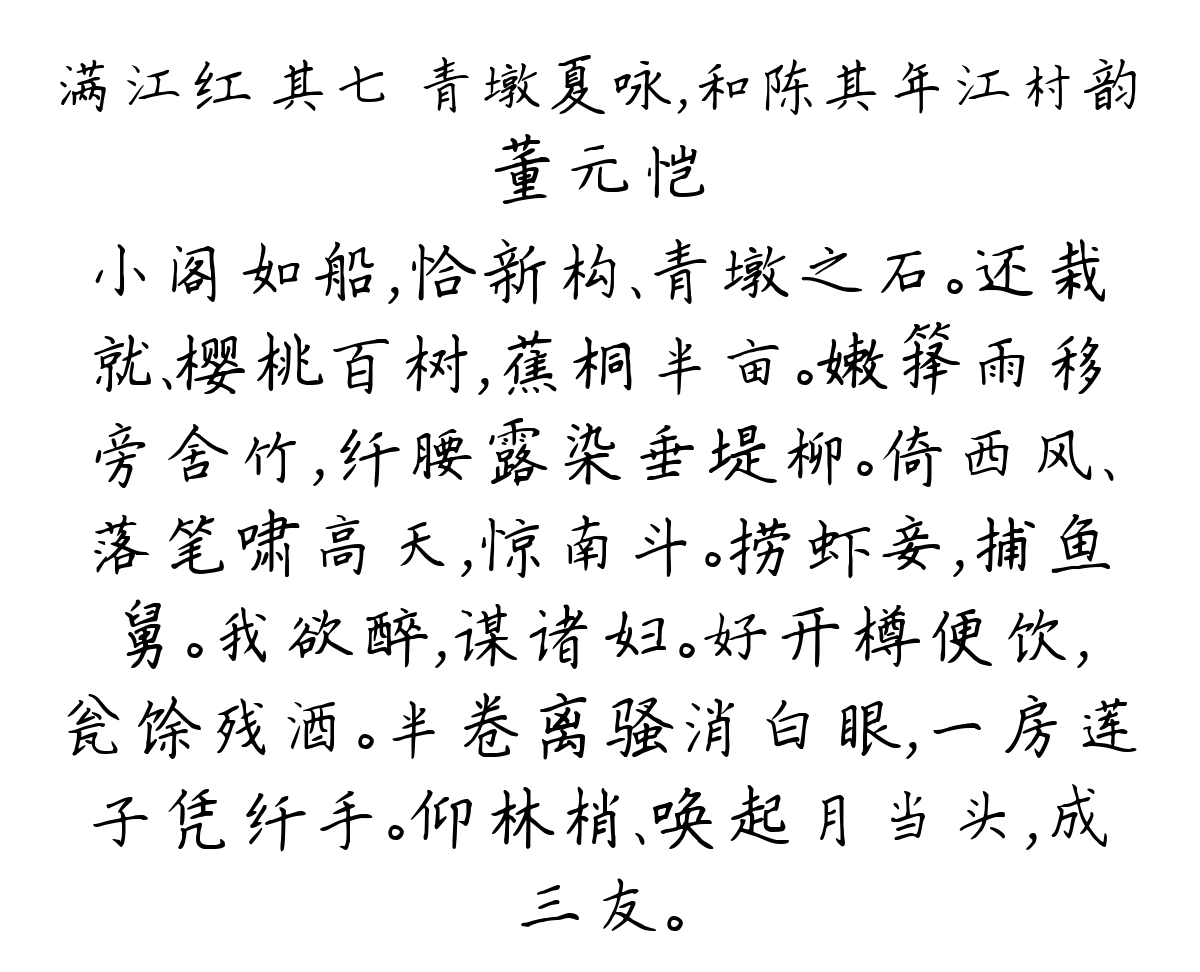 满江红 其七 青墩夏咏,和陈其年江村韵
董元恺
小阁如船,恰新构、青墩之石。还栽
就、樱桃百树,蕉桐半亩。嫩箨雨移
旁舍竹,纤腰露染垂堤柳。倚西风、
落笔啸高天,惊南斗。捞虾妾,捕鱼
舅。我欲醉,谋诸妇。好开樽便饮,
瓮馀残酒。半卷离骚消白眼,一房莲
子凭纤手。仰林梢、唤起月当头,成
三友。